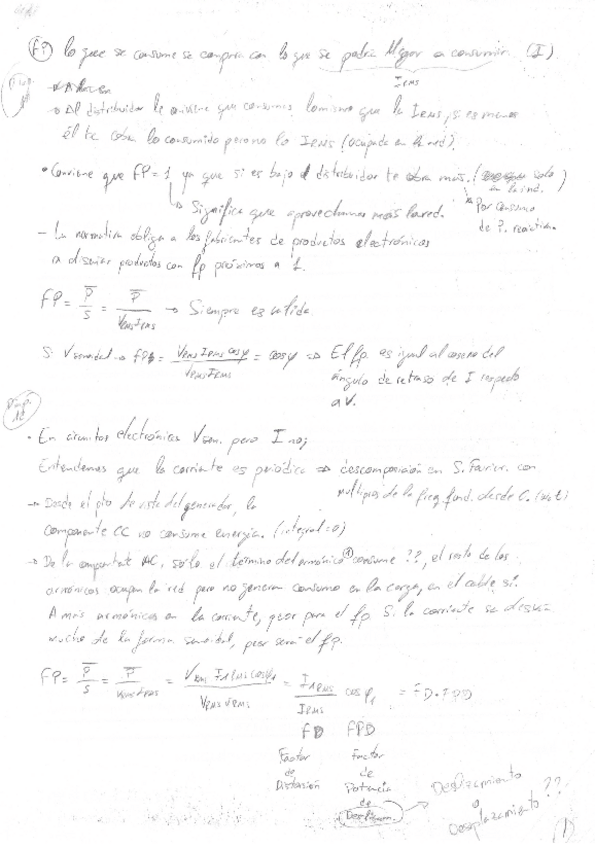 FP lo que se consume se compara con lo que se podría llegar a consumir. (I)
IRMS
→ Al distribuidor le conviene que consumas lo mismo que la IRMS, si es menos
él te cobra lo consumido pero no lo IRMS (ocupado en la red).
• Conviene que FP = 1 ya que si es bajo el distribuidor te cobra más. (solo en la ind.)
↳ Significa que aprovechamos más la red.
Por consumo
de P. reactiva.
- La normativa obliga a los fabricantes de productos electrónicos
a diseñar productos con fp próximos a 1.
FP = P/S = P/VRMS IRMS → Siempre es válida
Si V senoidal → FP = VRMS IRMS cosφ / VRMS IRMS = cosφ ⇒ El fp. es igual al coseno del
ángulo de retraso de I respecto
a V.
Diap.
12
• En circuitos electrónicos V sen. pero I no;
Entendemos que la corriente es periódica ⇒ descomposición en S. Fourier. con
múltiplos de la freq. fund. desde
→ Desde el pto de vista del generador, la
componente CC no consume energía. (integral = 0)
→ De la componente AC. sólo el término del armónico 1 consume ??, el resto de los
armónicos ocupan la red pero no generan consumo en la carga, en el cable sí.
A más armónicos en la corriente, peor para el fp Si la corriente se desvía
mucho de la forma senoidal, peor será el fp.
FP = P/S = P/VRMS IRMS = VRMS I1RMS cosφ1 / VRMS IRMS = I1RMS/IRMS cosφ1 = FD·FPD
FD FPD
Factor Factor
de de
Distorsión Potencia
de
Desplazamiento
o
Desplazamiento ??
1